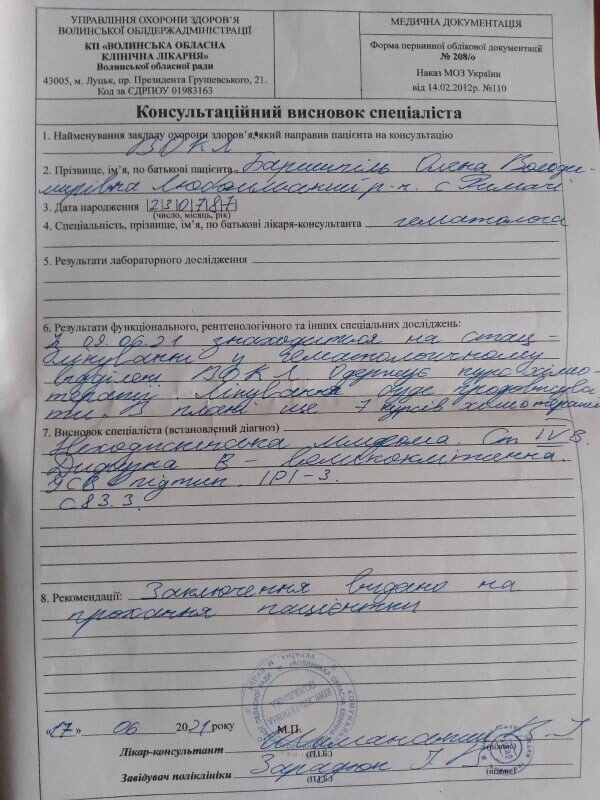 УПРАВЛІННЯ ОХОРОНИ ЗДОРОВ'Я
ВОЛИНСЬКОЇ ОБЛДЕРЖАДМІНІСТРАЦІЇ
КП «ВОЛИНСЬКА ОБЛАСНА
КЛІНІЧНА ЛІКАРНЯ»
Волинської обласної ради
43005, м. Луцьк, пр. Президента Грушевського, 21.
Код за ЄДРПОУ 01983163
МЕДИЧНА ДОКУМЕНТАЦІЯ
Форма первинної облікової документації
№ 208/о
Наказ МОЗ України
від 14.02.2012р. №110
Консультаційний висновок спеціаліста
1. Найменування закладу охорони здоров'я,який направив пацієнта на консультацію
ВОКЛ
2. Прізвище, ім'я, по батькові пацієнта Олена Володи-
мирівна р-н. с Римачі
3. Дата народження 230787
(число, місяць, рік)
4. Спеціальність, прізвище, ім'я, по батькові лікаря-консультанта гематолога
5. Результати лабораторного дослідження
6. Результати функціонального, рентгенологічного та інших спеціальних досліджень:
З 09.06.21 знаходиться на стац-
лікуванні у гематологічному
відділені ВОКЛ. Одержує курс хіміо-
терапії. Лікування буде продовжува
ти. В плані ще 7 курсів хіміотерапії
7. Висновок спеціаліста (встановлений діагноз)
Неходжкінська лімфома. Ст IVВ.
Дифузна В-великоклітинна.
GCB підтип. IPI-3.
С83.3.
8. Рекомендації: Заключення видано на
прохання пацієнтки
«17» 06 2021 року М.П.
Лікар-консультант
(П.І.Б.) (підпис)
Завідувач поліклініки
(П.І.Б.) (підпис)